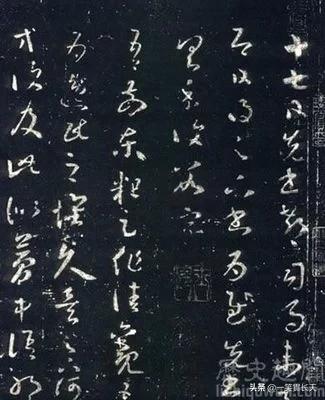 十七日先書郗司馬未去
即日得足下書為慰先書
以具示復數字
吾前東粗足作佳觀吾
為逸民之懷久矣足下何
以等復及此似夢中語耶
歷史趣聞
头条 @一笑貫长天